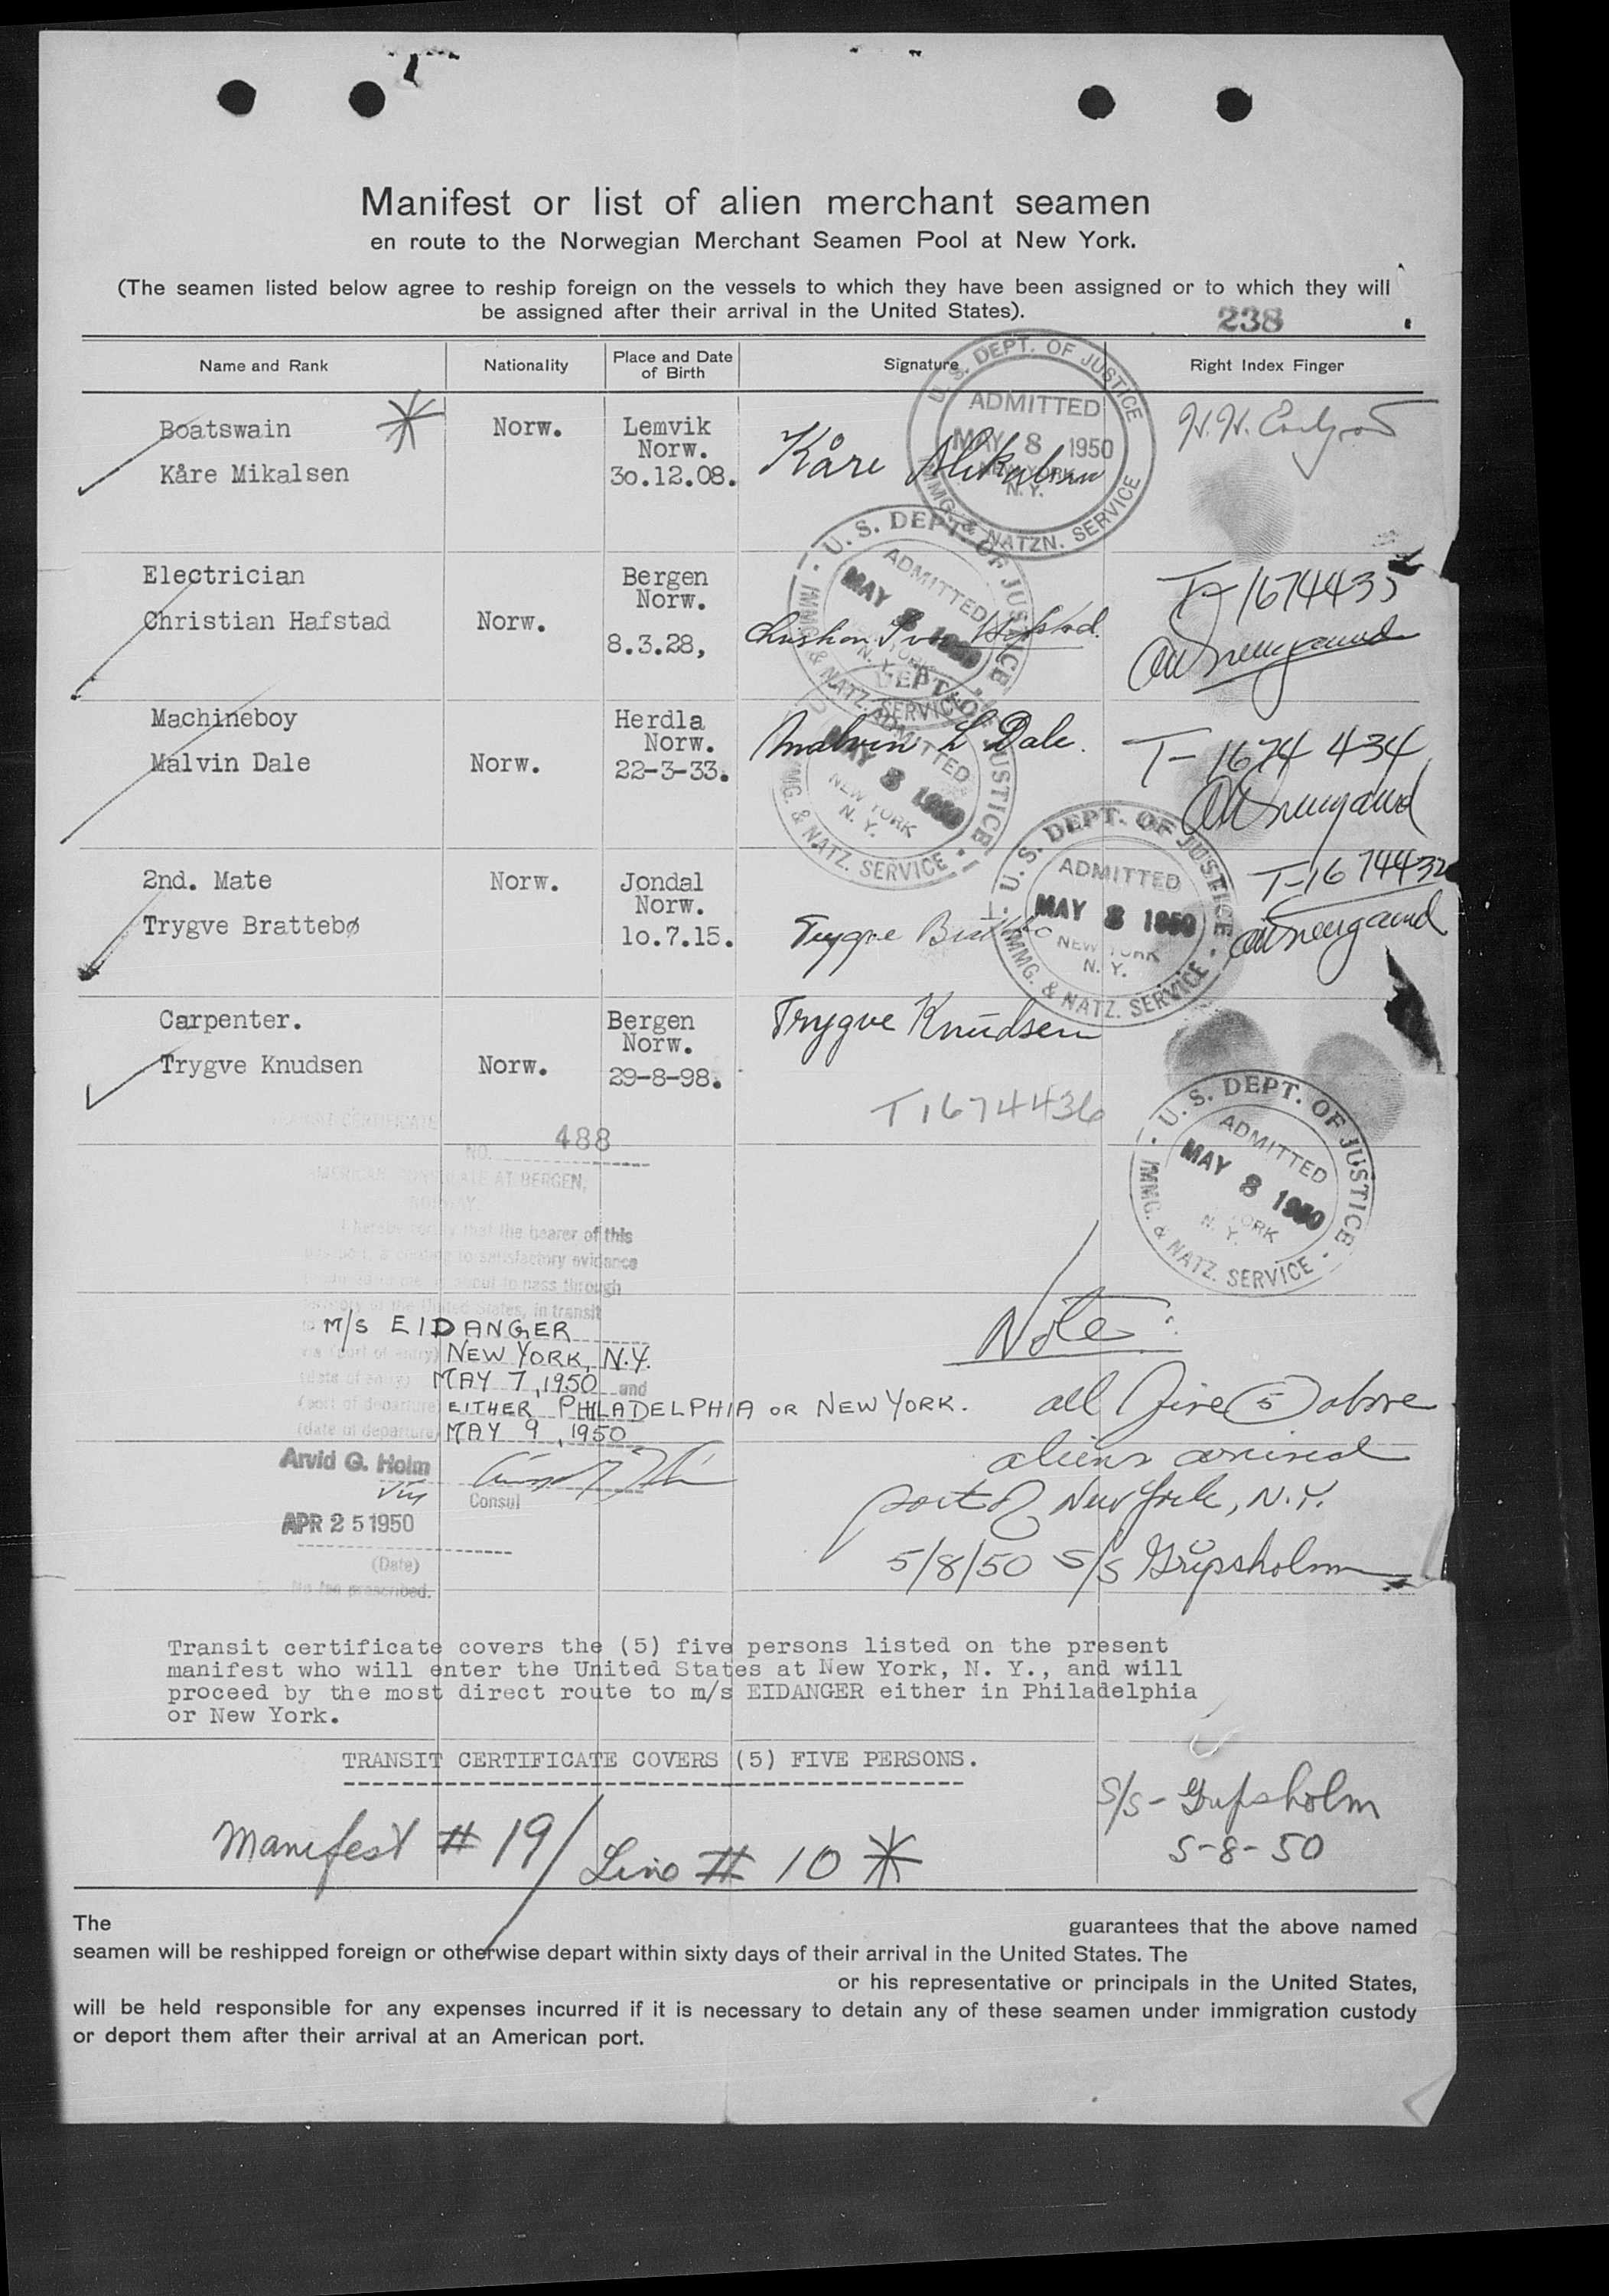 Manifest or list of alien merchant seamen
en route to the Norwegian Merchant Seamen Pool at New York.
(The seamen listed below agree to reship foreign on the vessels to which they have been assigned or to which they will
be assigned after their arrival in the United States).
238
Name and Rank
Nationality
Place and Date
of Birth
Signature
Right Index Finger
Boatswain
Kåre Mikalsen
Norw.
Lemvik
Norw.
30.12.08.
Kåre Mikalsen
U. S. DEPT. OF JUSTICE
ADMITTED
MAY 8 1950
NEW YORK
N.Y.
IMMG. & NATZN. SERVICE
Electrician
Christian Hafstad
Norw.
Bergen
Norw.
8.3.28,
Christian Hafstad.
T-1674435
U. S. DEPT. OF JUSTICE
ADMITTED
MAY 8 1950
N. Y.
IMMG. & NATZ. SERVICE
Machineboy
Malvin Dale
Norw.
Herdla
Norw.
22-3-33.
Malvin L Dale.
T-1674 434
DEPT. OF JUSTICE
ADMITTED
MAY 8 1950
NEW YORK
N. Y.
IMMG. & NATZ. SERVICE
2nd. Mate
Trygve Brattebø
Norw.
Jondal
Norw.
10.7.15.
Trygve Brattebø
T-1674432
U. S. DEPT. OF JUSTICE
ADMITTED
MAY 8 1950
NEW YORK
N. Y.
IMMG. & NATZ. SERVICE
Carpenter.
Trygve Knudsen
Norw.
Bergen
Norw.
29-8-98.
Trygve Knudsen
T1674436
U. S. DEPT. OF JUSTICE
ADMITTED
MAY 8 1950
YORK
N. Y.
IMMG. & NATZ. SERVICE
TRANSIT CERTIFICATE
NO. 488
AMERICAN CONSULATE AT BERGEN,
NORWAY.
I hereby certify that the bearer of this
to satisfactory evidence
about to pass through
territory of the United States, in transit
to M/S EIDANGER
via (port of entry) NEW YORK, N.Y.
(date of entry) MAY 7, 1950 and
(port of departure) EITHER PHILADELPHIA OR NEW YORK.
(date of departure) MAY 9, 1950
Arvid G. Holm
Consul
APR 25 1950
(Date)
No fee prescribed.
Note:
all five (5) above
aliens arrived
port of New York, N.Y.
5/8/50 S/S Gripsholm
Transit certificate covers the (5) five persons listed on the present
manifest who will enter the United States at New York, N. Y., and will
proceed by the most direct route to m/s EIDANGER either in Philadelphia
or New York.
TRANSIT CERTIFICATE COVERS (5) FIVE PERSONS.
S/S - Gripsholm
5-8-50
Manifest # 19 / Line # 10 *
The guarantees that the above named
seamen will be reshipped foreign or otherwise depart within sixty days of their arrival in the United States. The
or his representative or principals in the United States,
will be held responsible for any expenses incurred if it is necessary to detain any of these seamen under immigration custody
or deport them after their arrival at an American port.